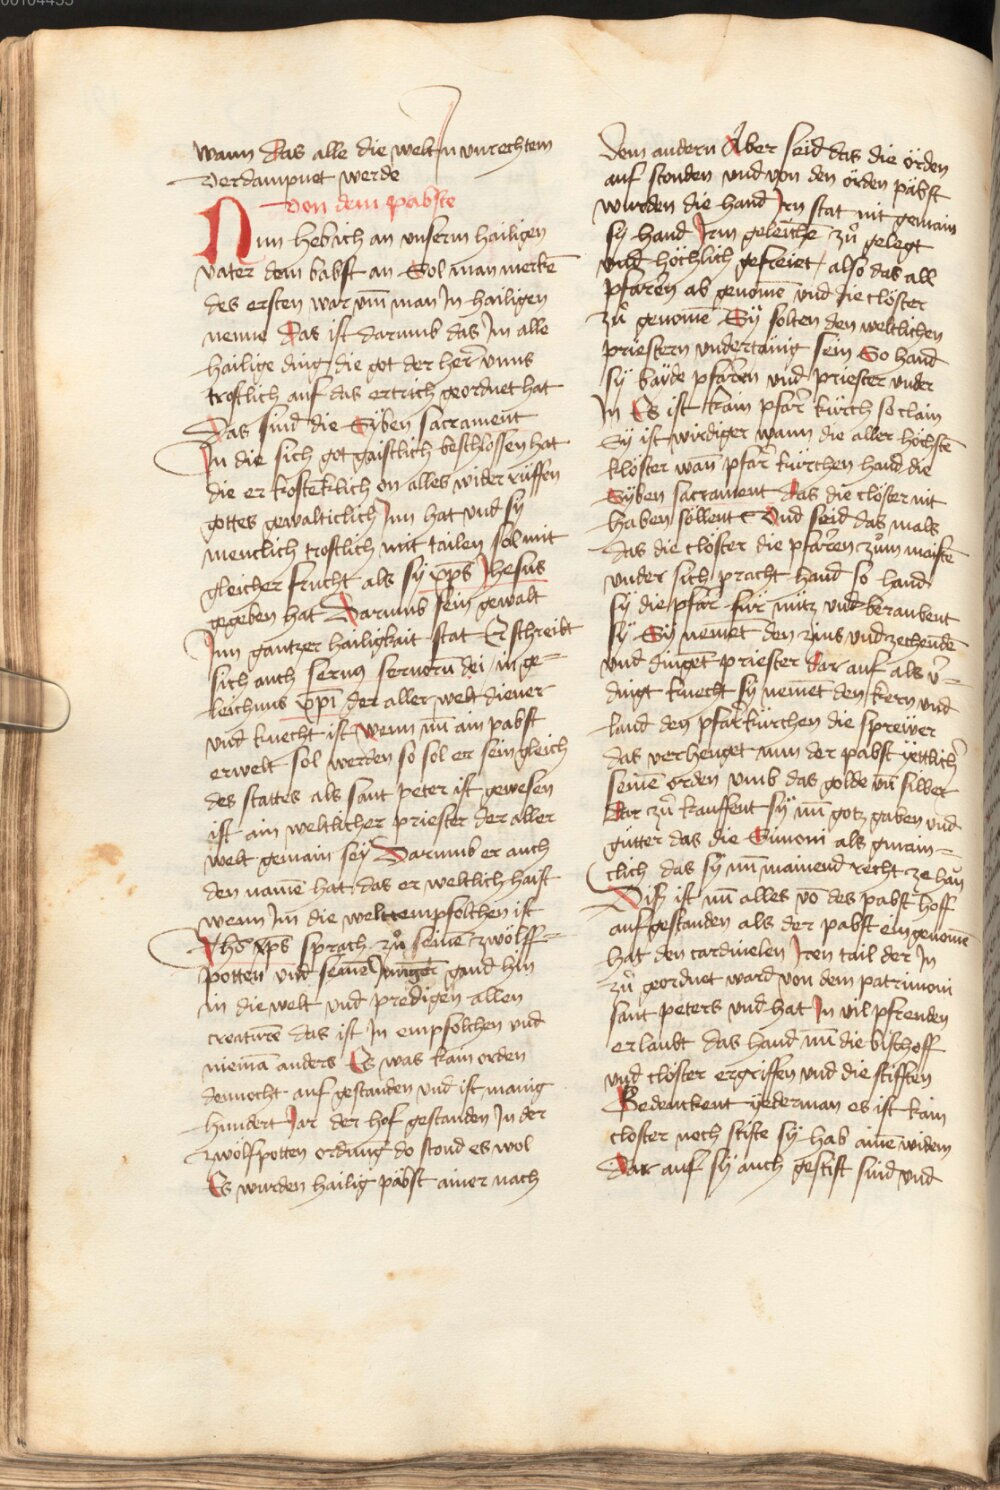 00104455
wann das alle die welt In unrechtem
verdampnet werde
Von dem pabste
Nun heb ich an unserm hailigen
vater dem babst an Sol man mercke͂
des ersten war um͂ man In hailigen
nenne Das ist darumb das Im alle
hailige ding die got der her͂ unns
trostlich auf das ertrich geordnet hat
Das sind die Syben sacrament
In die sich got gaistlich beschlossen hat
die er kostencklich on alles wider rüffen
gottes gewalticlich Inn hat und sy
menclich trostlich mit tailen sol mit
gleicher frucht als sy xp͂s Jhesus
gegeben hat Darumb sein gewalt
Inn gantzer hailigkait stat Er schreibt
sich auch servus servoru͂ dei in ge=
leichnus xp͂i der aller welt diener
und knecht ist Wenn nu͂ ain pabst
erwelt sol werden so sol er sein gleich
des stattes als sant peter ist gewesen
ist ain weltlicher priester der aller
welt gemain sey Darumb er auch
den name͂ hat das er weltlich haist
wenn Im die welt empfolchen ist
Jhe͂ xp͂s sprach zů seine͂ zwölff=
potten und seine͂ Junger͂ gand hin
in die welt und predigen allen
creature͂ das ist In empfolchen und
niema͂ anders Es was kain orden
dennocht auf gestanden und ist manig
hundert Jar der hof gestanden In der
zwölfpotten ordnung do stond es wol
Es wurden hailig päbst ainer nach
dem andern Aber seid das die örden
auf stonden und von den örden päbst
wurden die hand Irn stat nit gemain
sy hand Irm geleiche͂ zů gelegt
und höchlich gefreiet also das all
pfaren ab genome͂ und die clöster
zů genome͂ Sy solten den weltlichen
priestern undertänig sein So hand
sy bayde pfaren und priester under
In Es ist kain pfar͂ kürch so clain
Sy ist wirdiger wann die aller höchste͂
klöster wan͂ pfar͂ kürchen hand die
Syben sacrament das die clöster nit
haben söllent Und seid das mals
das die clöster die pfaren zum maiste͂
under sich pracht hand so hand
sy die pfar für nütz und beraubent
sy Sy neme͂t den zins und zechende͂
und dinget priester dar auf als v͂=
dingt knecht sy neme͂t den kern und
land den pfarkürchen die sprewer
das verhenget nun der pabst yettliche͂
seine͂ orden umb das golde un͂ silber
Dar zů kauffent sy nu͂ gotz gaben und
gütter das die Simoni als gmain=
clich das sy nu͂ mainend recht ze han
Diß ist nu͂ alles vo͂ des pabst hoff
auf gestanden als der pabst eingenome͂
hat den cardinelen Iren tail der In
zů geordnet ward von dem patrimoni
sant peters und hat In vil pfrenden
erlaubt das hand nu͂ die bischoff
und clöster ergriffen und die stifften
Bedenckent yederman es ist kain
closter noch stifte sy hab aine͂ widem
Dar auf sy auch gestift sind und